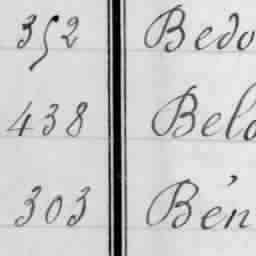 352 Bedo
438 Belo
303 Bén